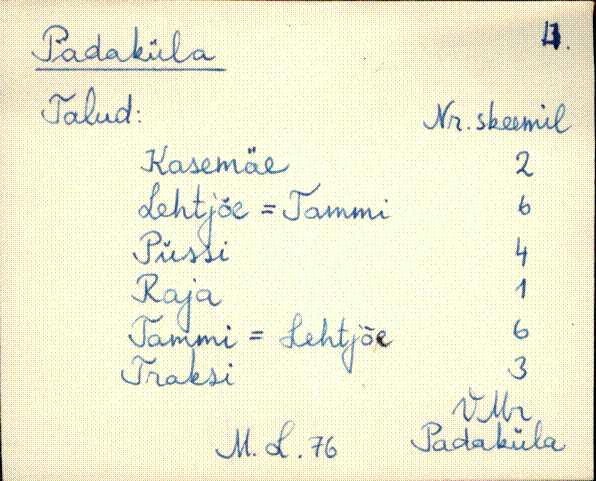 Padaküla
Talud: Nr. skeemil
Kasemäe 2
Lehtjõe = Tammi 6
Püssi 4
Raja 1
Tammi = Lehtjõe 6
Traksi 3
VMr
M. L. 76 Padaküla